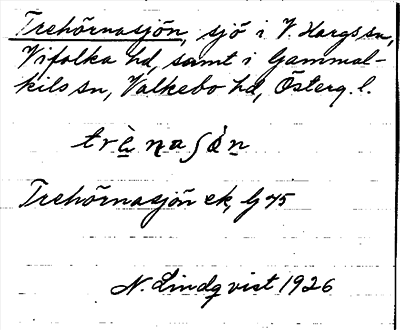 Trehörnasjön, sjö i V. Hargs sn,
Vifolka hd, samt i Gammal-
kils sn, Valkebo hd, Österg. l.
trènaʃǿn
Trehörnasjön ek, G 75
N. Lindqvist 1926